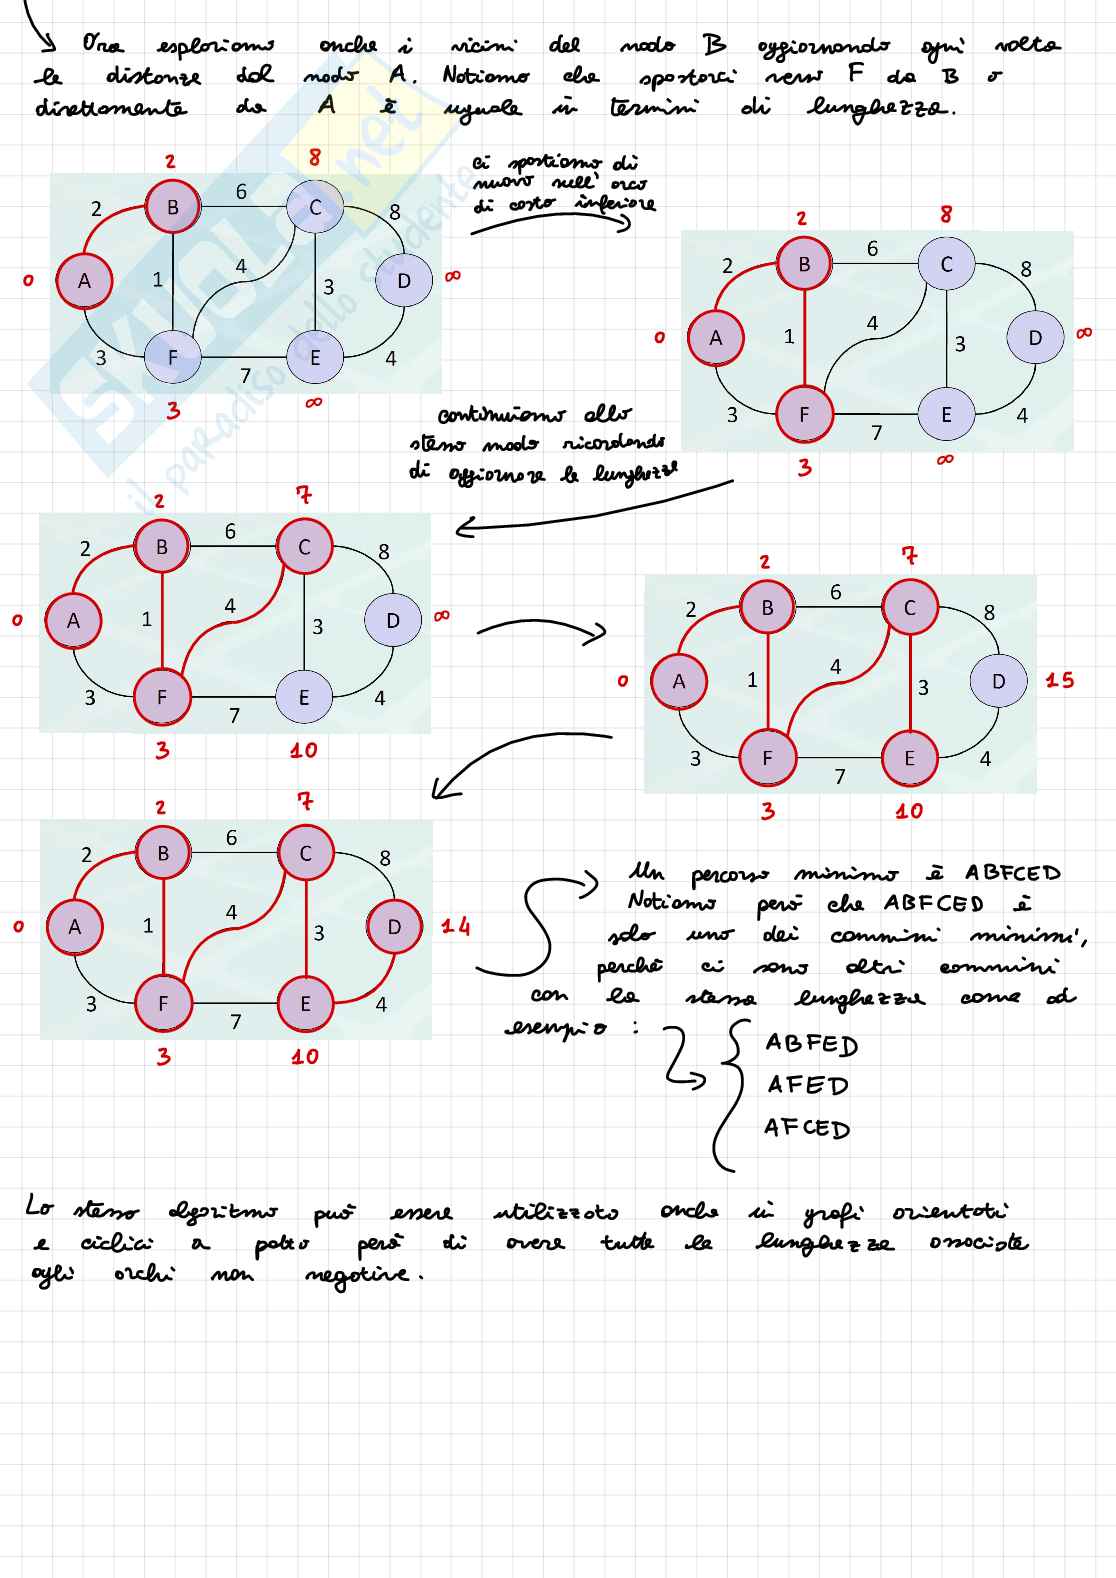 Ora esploriamo anche i vicini del nodo B aggiornando ogni volta
le distanze dal nodo A. Notiamo che spostarci verso F da B o
direttamente da A è uguale in termini di lunghezza.
2 8
2 B 6 C 8
0 A 1 4 3 D ∞
3 F 7 E 4
3 ∞
ci spostiamo di
nuovo nell'arco
di costo inferiore
2 8
2 B 6 C 8
0 A 1 4 3 D ∞
3 F 7 E 4
3 ∞
continuiamo allo
stesso modo ricordando
di aggiornare le lunghezze
2 7
2 B 6 C 8
0 A 1 4 3 D ∞
3 F 7 E 4
3 10
2 7
2 B 6 C 8
0 A 1 4 3 D 15
3 F 7 E 4
3 10
2 7
2 B 6 C 8
0 A 1 4 3 D 14
3 F 7 E 4
3 10
Un percorso minimo è ABFCED
Notiamo però che ABFCED è
solo uno dei cammini minimi,
perché ci sono altri cammini
con la stessa lunghezza come ad
esempio :
ABFED
AFED
AFCED
Lo stesso algoritmo può essere utilizzato anche in grafi orientati
e ciclici a patto però di avere tutte le lunghezze associate
agli archi non negative.
SKUOLA.net
il paradiso dello studente